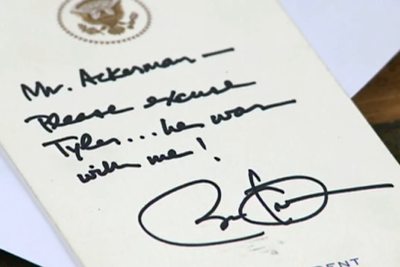 Mr. Ackerman —
Please excuse
Tyler... he was
with me!
DENT